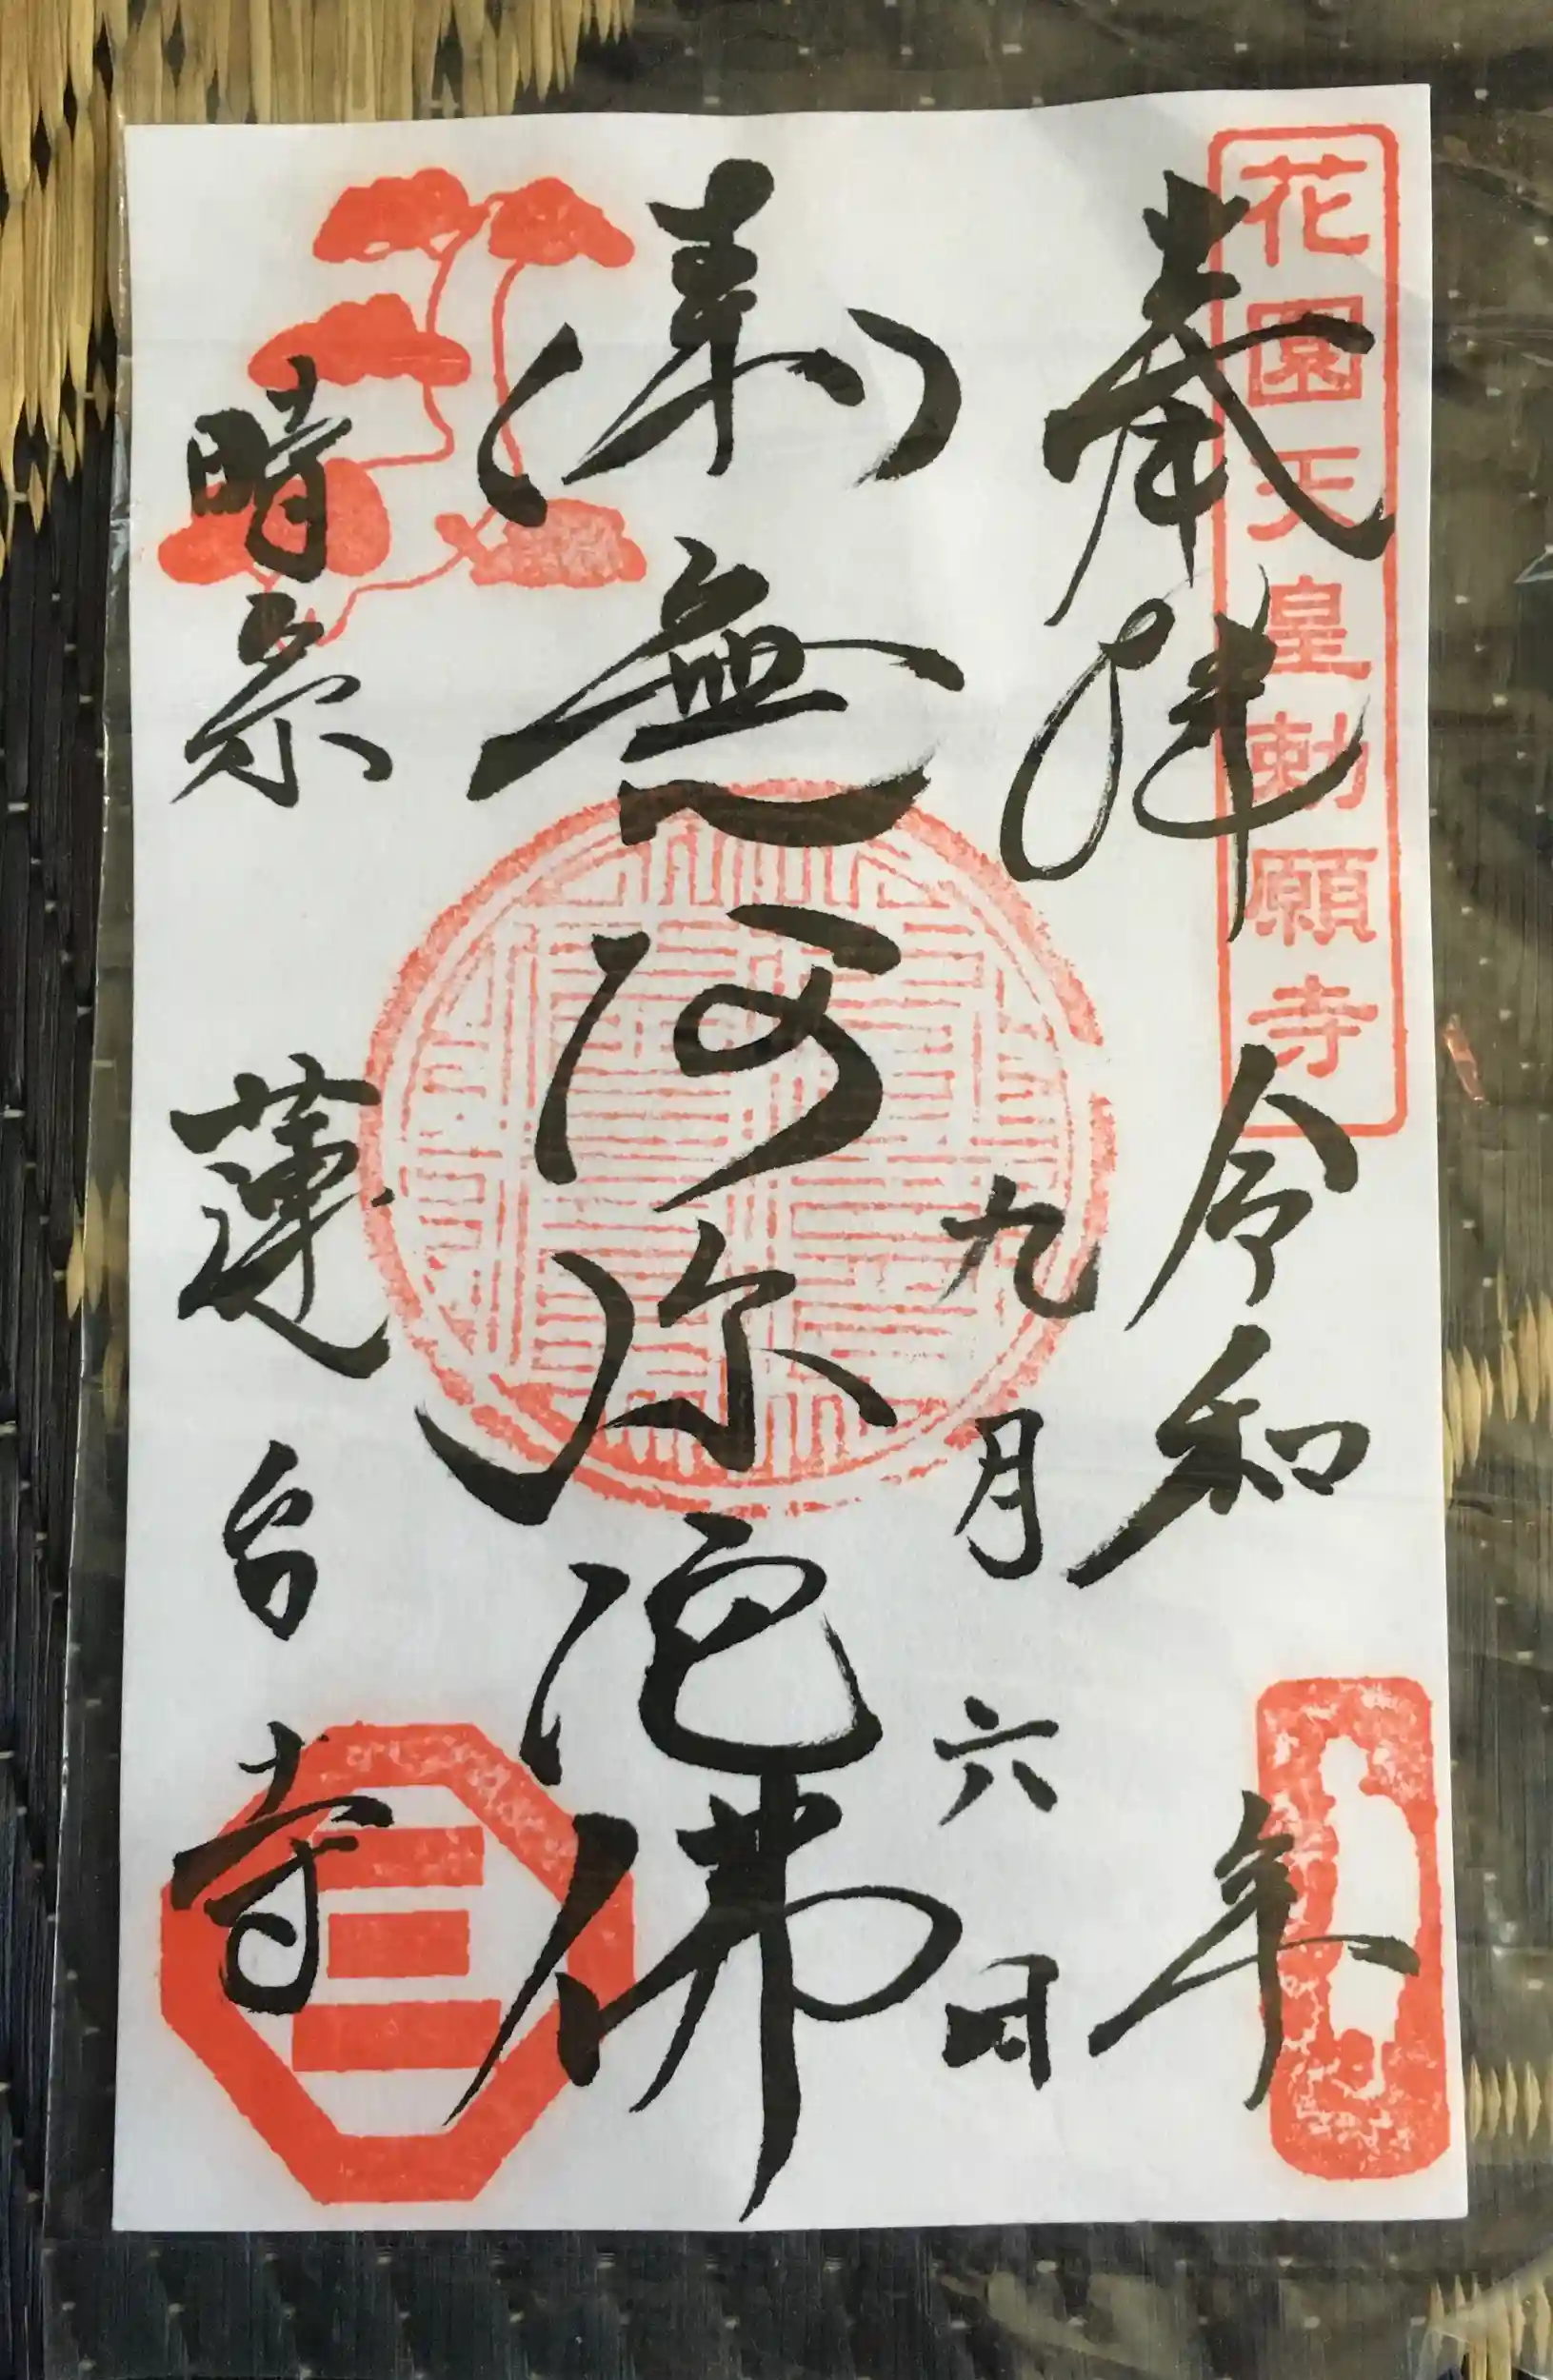 花園天皇勅願寺
奉拝
令和 年
九月六日
南無阿弥陀佛
時宗
蓮台寺